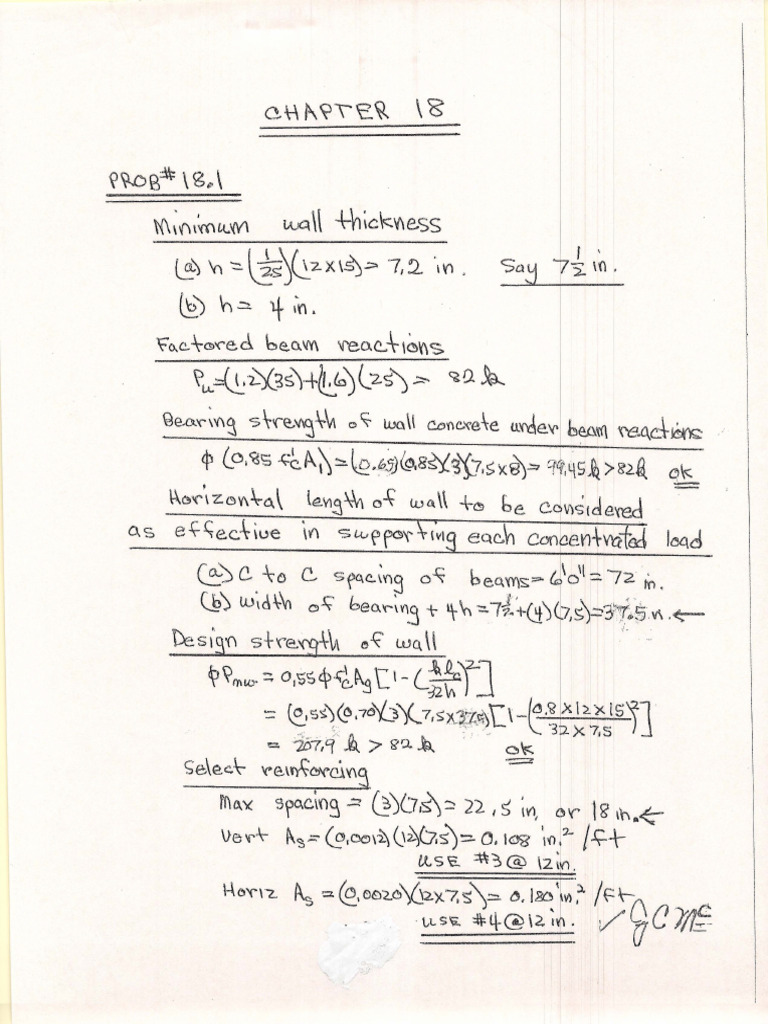 CHAPTER 18
PROB# 18.1
Minimum wall thickness
(a) h = (1/25)(12×15) = 7.2 in. Say 7 1/2 in.
(b) h = 4 in.
Factored beam reactions
Pu = (1.2)(35)+(1.6)(25) = 82 k
Bearing strength of wall concrete under beam reactions
φ (0.85 f'c A1) = (0.65)(0.85)(3)(7.5×8) = 99.45 k > 82 k ok
Horizontal length of wall to be considered
as effective in supporting each concentrated load
(a) C to C spacing of beams = 6'0" = 72 in.
(b) width of bearing + 4h = 7 1/2 + (4)(7.5) = 37.5 n. ←
Design strength of wall
φPnw = 0.55 φ f'c Ag [1 - (klc/32h)²]
= (0.55)(0.70)(3)(7.5×37.5)[1 - (0.8×12×15/32×7.5)²]
= 207.9 k > 82 k ok
Select reinforcing
Max spacing = (3)(7.5) = 22.5 in, or 18 in. ←
Vert As = (0.0012)(12)(7.5) = 0.108 in.² /ft
USE #3 @ 12 in.
Horiz As = (0.0020)(12×7.5) = 0.180 in.² /ft
USE #4 @ 12 in. ✓ JC McC